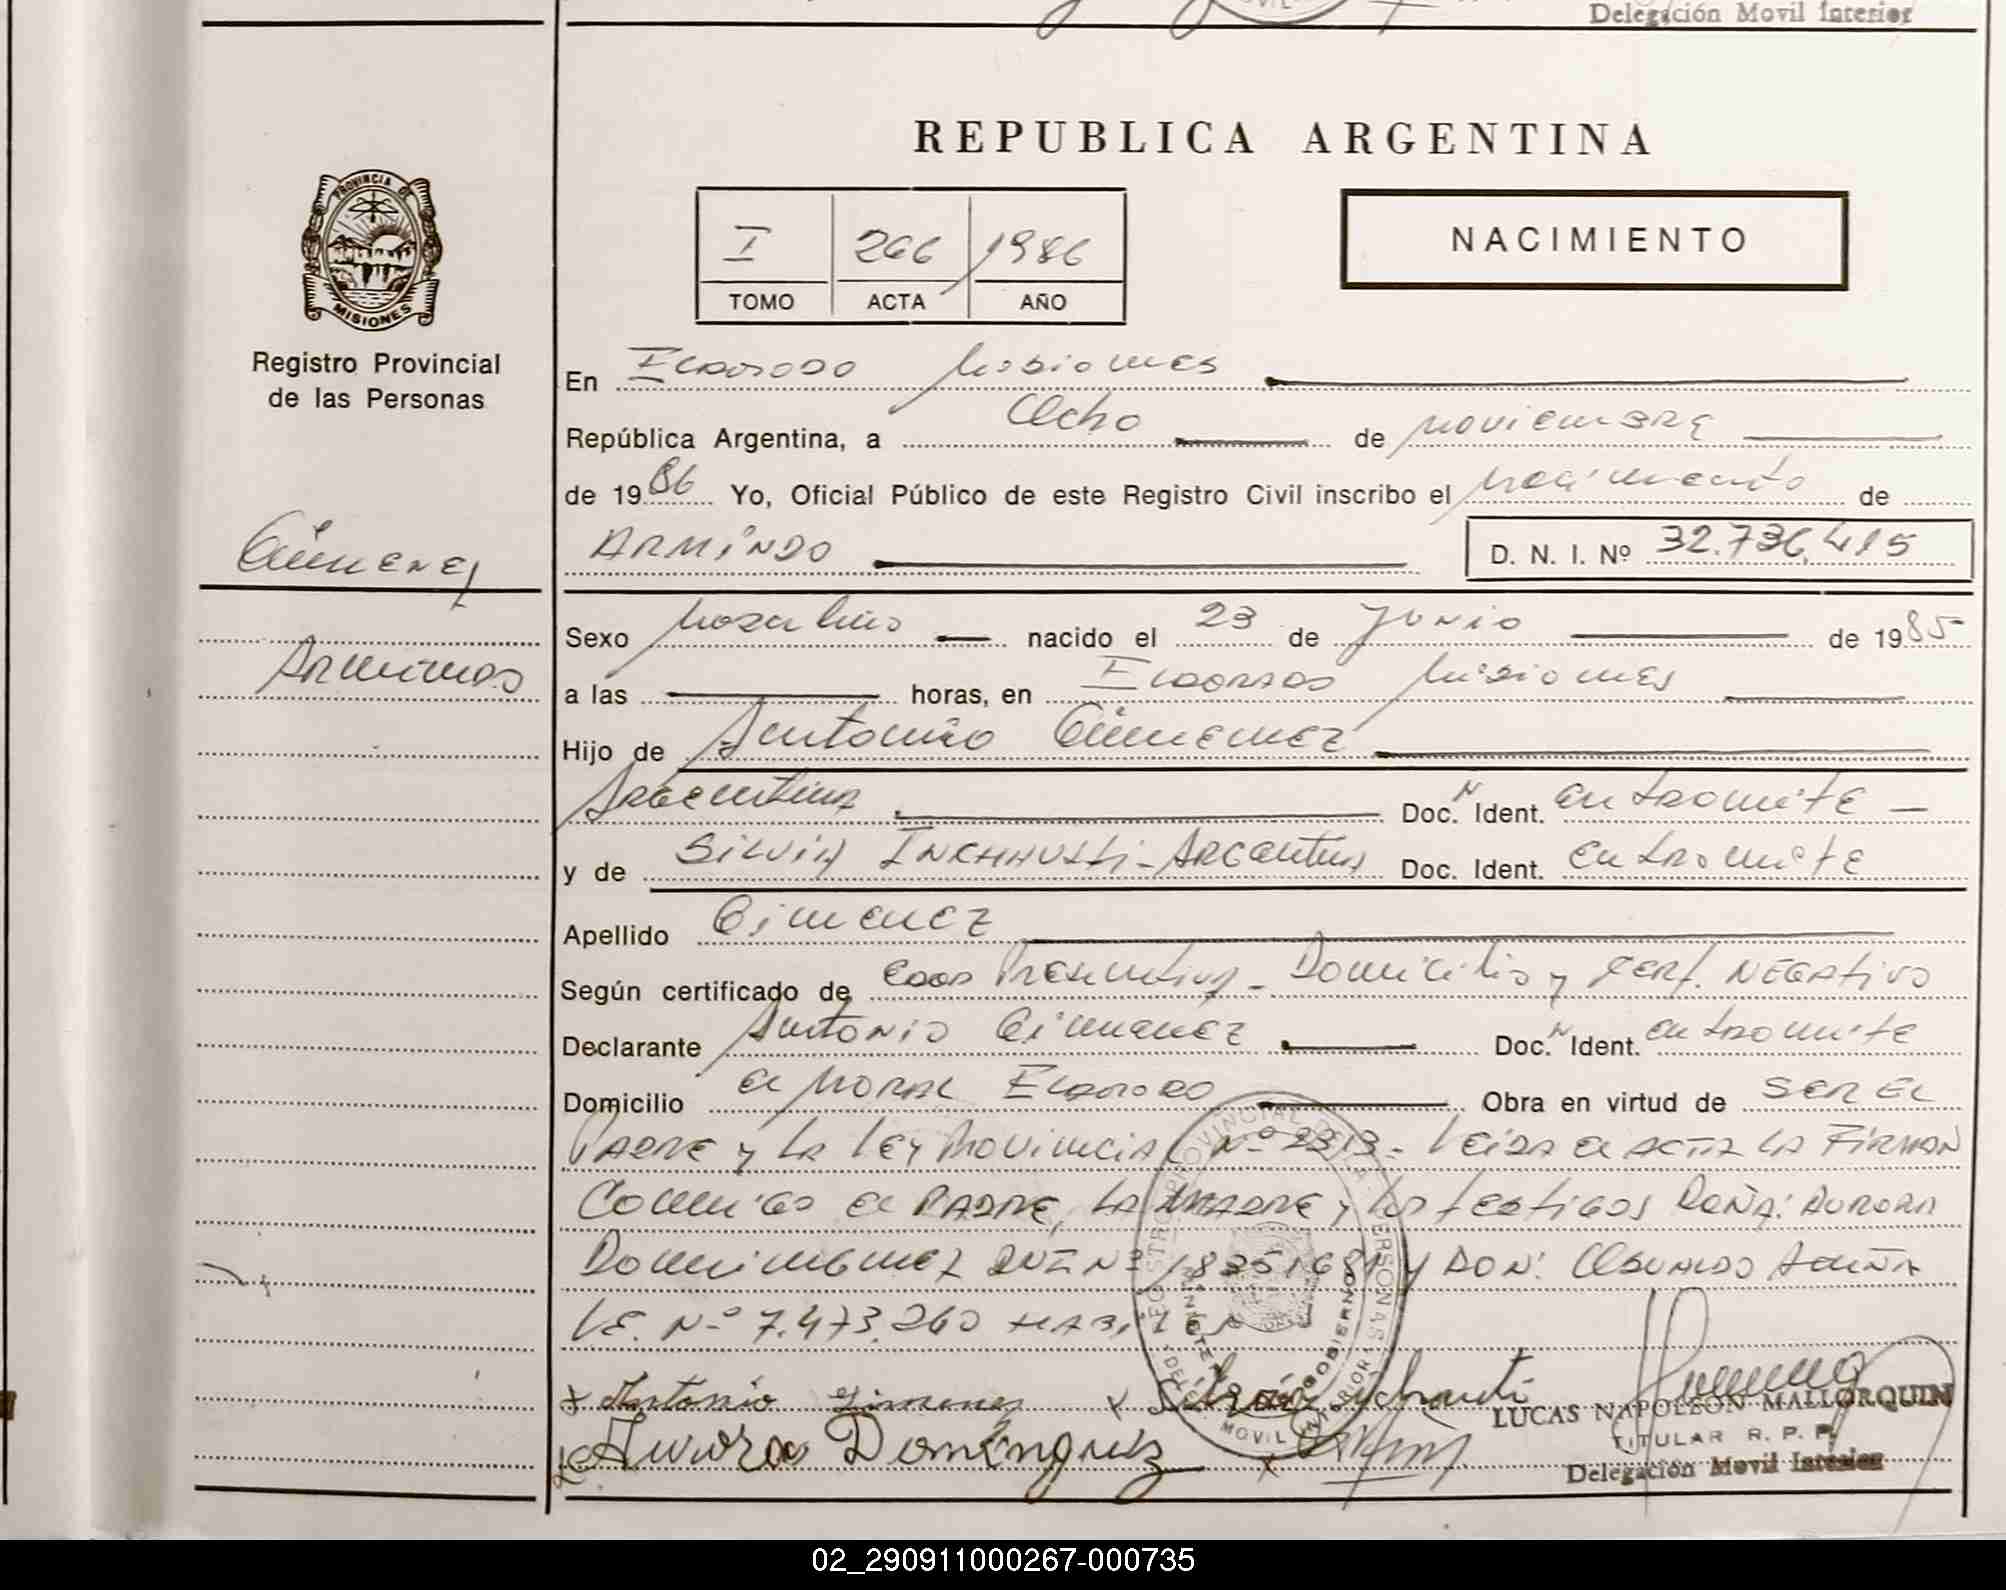 Delegación Movil Interior
REPUBLICA ARGENTINA
PROVINCIA DE
MISIONES
Registro Provincial
de las Personas
I 266 1986
TOMO ACTA AÑO
NACIMIENTO
En Eldorado Misiones
República Argentina, a Ocho de noviembre
de 1986 Yo, Oficial Público de este Registro Civil inscribo el nacimiento de
Gimenez
ARMINDO D. N. I. Nº 32.736.415
Armindo
Sexo Masculino nacido el 23 de Junio de 1985
a las horas, en Eldorado Misiones
Hijo de Antonio Gimenez
Argentina Doc. Ident. en tramite
y de Silvia Inchausti - Argentina Doc. Ident. en tramite
Apellido Gimenez
Según certificado de Edad Presuntiva - Domicilio y Cert. Negativo
Declarante Antonio Gimenez Doc. Ident. en tramite
Domicilio El Moral Eldorado Obra en virtud de ser el
Padre y la Ley Provincial Nº 2313 - Leida el acta la firman
Conmigo el Padre, la Madre y los testigos Doña: Aurora
Dominguez DNI Nº y Don: Osvaldo Acuña
L.E. Nº 7.473.260 Habiles
x Antonio Gimenez x
Aurora Dominguez x
LUCAS NAPOLEON MALLORQUIN
TITULAR R. P. P.
Delegación Movil Interior
02_290911000267-000735